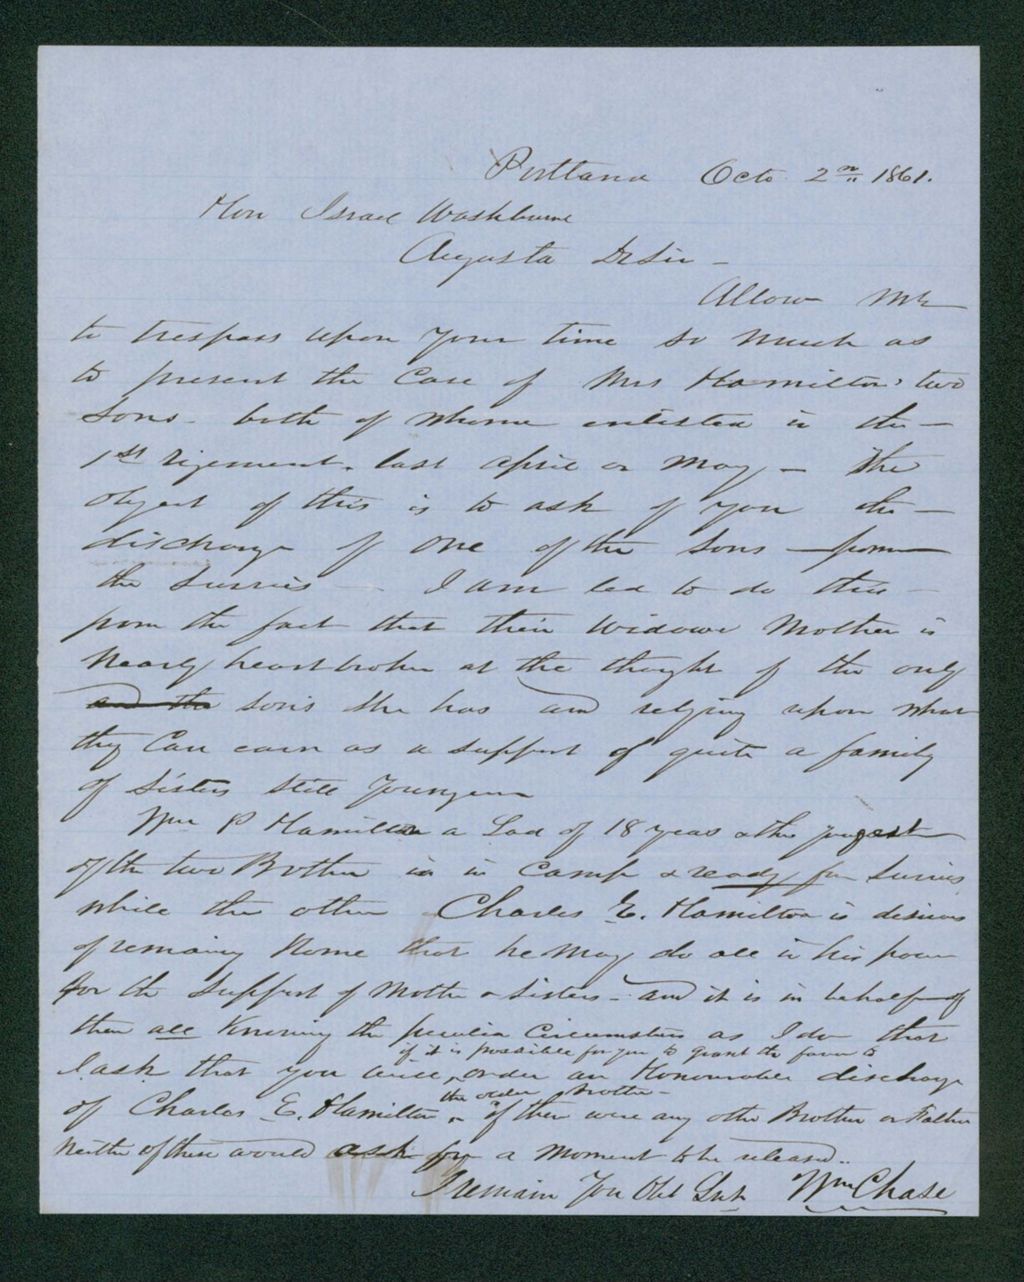 Portland Octo 2nd 1861.
Hon Israel Washburne
Augusta Dr Sir –
Allow Me
to trespass upon Your time so Much as
to present the Case of Mrs Hamiltons two
Sons – both of Whome enlisted in the –
1st rigement. last April or May – The
object of this is to ask of you the –
discharge of One of the Sons – from
the Survis – I am led to do this –
from the fact that their Widowe Mother is
Nearly heartbroken at the thought of the only
and the sons She has and relying upon what
they Can earn as a support of quite a family
of Sisters still Younger
Wm P Hamilton a Lad of 18 years & the yougest
of the two Brother is in Camp & ready for Survis
while the other Charles E. Hamilton is desirous
of remaing home that he May do all in his power
for the Support of Mother & Sisters – and it is in behalf of
them all Knowing the peculiar Circumstances as I do that
if it is possible for you to grant the favor to
I ask that you will, order an Honourable discharge
the older brother –
of Charles E. Hamilton – if there were any other Brother or Father
Neither of these would ask for a Moment to be released..
I remain Your Obt Svt Wm Chase